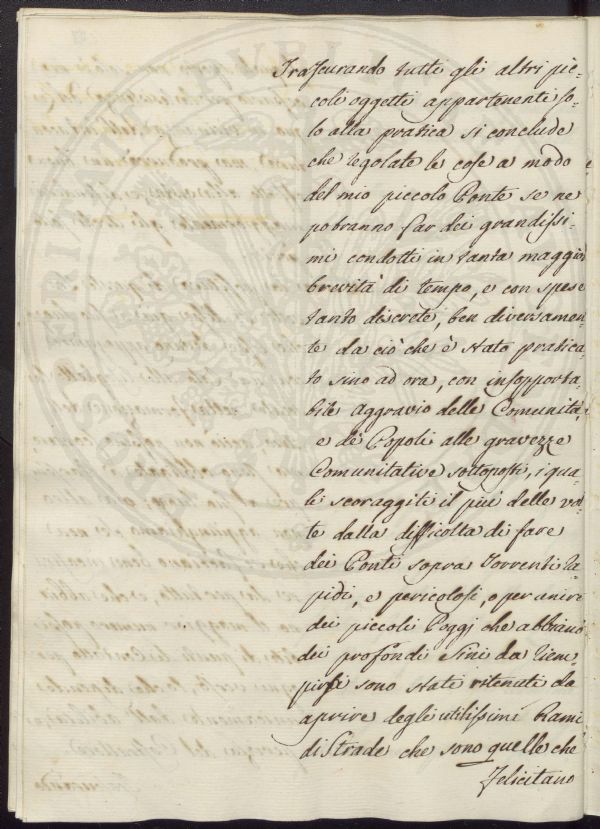 Trascurando tutti gli altri pic-
coli oggetti appartenenti so-
lo alla pratica si conclude
che regolate le cose a modo
del mio piccolo Ponte se ne
potranno far dei grandissi-
mi condotti in tanta maggior
brevità di tempo, e con spese
tanto discrete, ben diversamen-
te da ciò che è stato pratica-
to sino ad ora, con insopporta-
bile aggravio delle Comunità,
e de' Popoli alle gravezze
Comunitative sottoposti, i qua-
li scoraggiti il più delle vol-
te dalla difficoltà di fare
dei Ponti sopra Torrenti ra-
pidi, e pericolosi, o per unire
dei piccoli Poggj che abbiano
dei profondi Sini da riem-
pirsi sono stati ritenuti da
aprire degli utilissimi Rami
di Strade che sono quelle che
felicitano